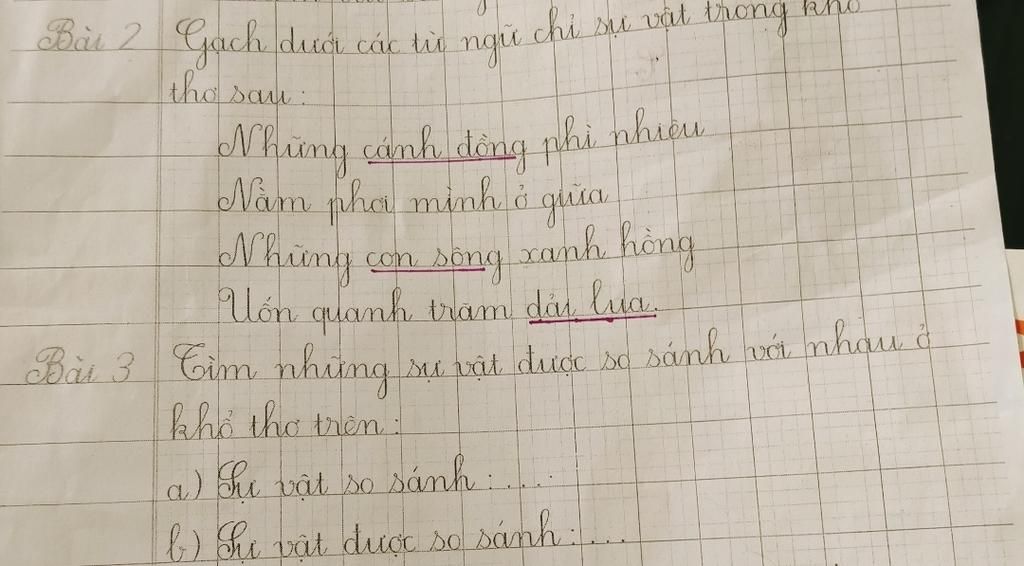 Bài 2 Gạch dưới các từ ngữ chỉ sự vật trong khổ
thơ sau:
Những cánh đồng phì nhiêu
Nằm phơi mình ở giữa
Những con sông xanh hồng
Uốn quanh trăm dải lụa.
Bài 3 Tìm những sự vật được so sánh với nhau ở
khổ thơ trên:
a) Sự vật so sánh:....
b) Sự vật được so sánh:...